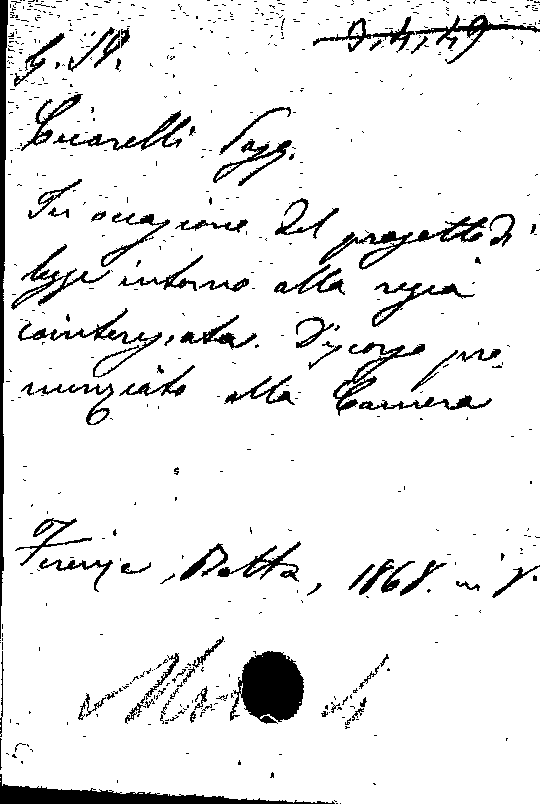 D, 4, 4, 49
Ciccarelli
In occazione del progetto di
legge intorno alla regia
cointeressata. Discorso pro
nunziato alla Camera
Firenze, Botta, 1868. in 8.